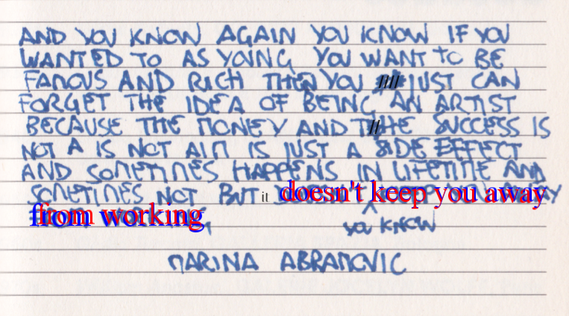 AND YOU KNOW AGAIN YOU KNOW IF YOU
WANTED TO AS YOUNG YOU WANT to BE
FAMOUS AND RICH THEN YOU JUST CAN
FORGET THE IDEA OF BEING AN ARTIST
BECAUSE THE MONEY AND THE SUCCESS IS
NOT A IS NOT AIM IS JUST A SIDE EFFECT
AND SOMETIMES HAPPENS IN LIFETIME AND
SOMETIMES NOT BUT it doesn't keep you away
from working you KNOW
MARINA ABRAMOVIC